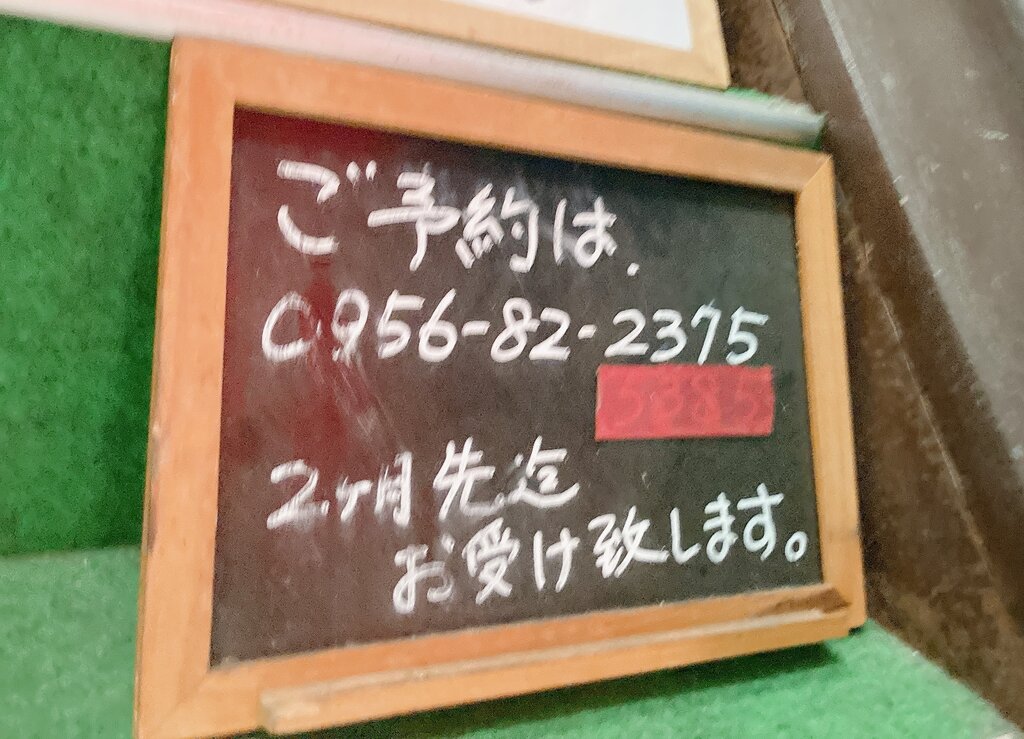 ご予約は.
0956-82-2375
5385
2ヶ月先迄
お受け致します。